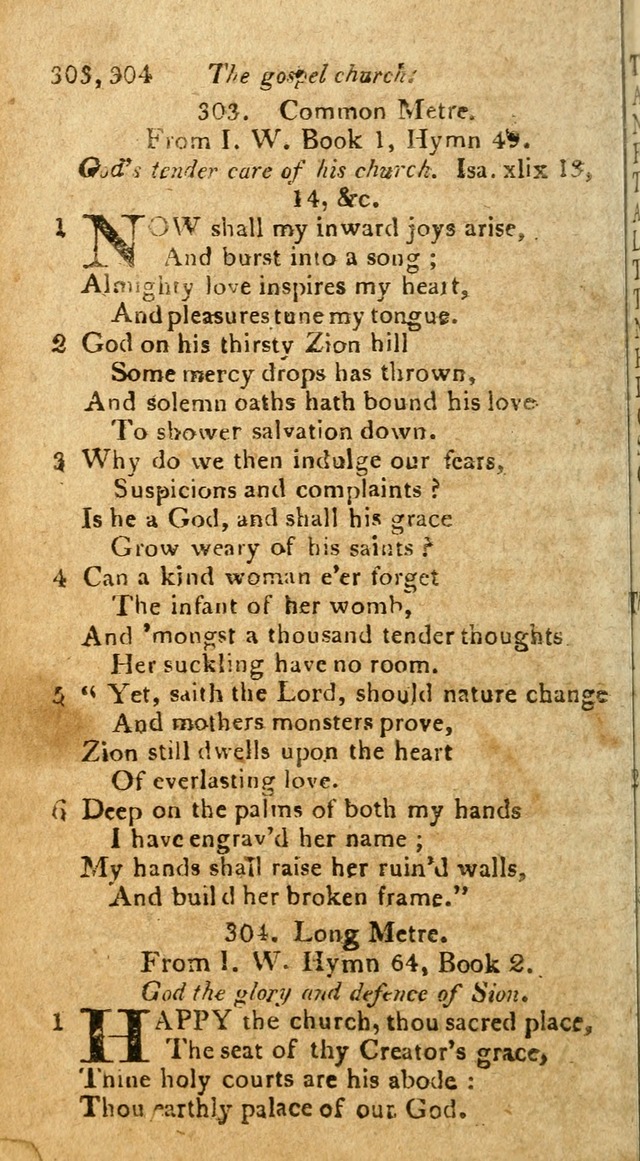 303, 304 The gospel church.
303. Common Metre.
From I. W. Book 1, Hymn
God's tender care of his church. Isa. xlix 13,
14, &c.
1 NOW shall my inward joys arise,
And burst into a song ;
Almighty love inspires my heart,
And pleasures tune my tongue.
2 God on his thirsty Zion hill
Some mercy drops has thrown,
And solemn oaths hath bound his love
To shower salvation down.
3 Why do we then indulge our fears,
Suspicions and complaints ?
Is he a God, and shall his grace
Grow weary of his saints ?
4 Can a kind woman e'er forget
The infant of her womb,
And 'mongst a thousand tender thoughts
Her suckling have no room.
5 “ Yet, saith the Lord, should nature change
And mothers monsters prove,
Zion still dwells upon the heart
Of everlasting love.
6 Deep on the palms of both my hands
I have engrav'd her name ;
My hands shall raise her ruin'd walls,
And build her broken frame.”
304. Long Metre.
From I. W. Hymn 64, Book 2.
God the glory and defence of Sion.
1 HAPPY the church, thou sacred place,
The seat of thy Creator's grace,
Thine holy courts are his abode :
Thou earthly palace of our God.